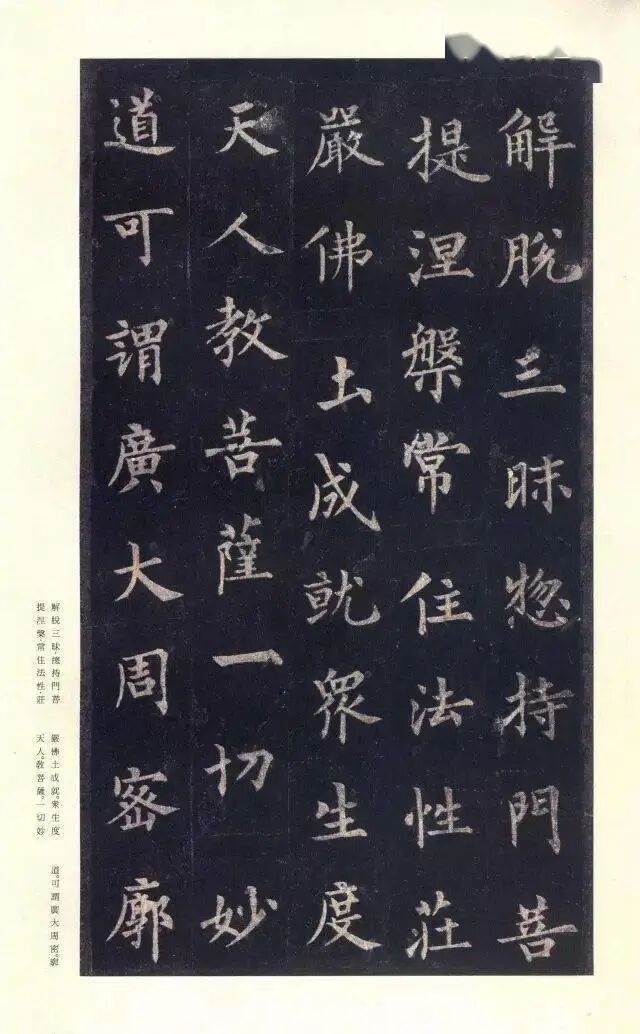 解脫三昧惣持門菩
提涅槃常住法性莊
嚴佛土成就眾生度
天人教菩薩一切妙
道可謂廣大周密廓
解脫三昧，總持門菩
提涅槃，常住法性，莊
嚴佛土成就。衆生度
天人。教菩薩。一切妙
道。可謂廣大周密。廓